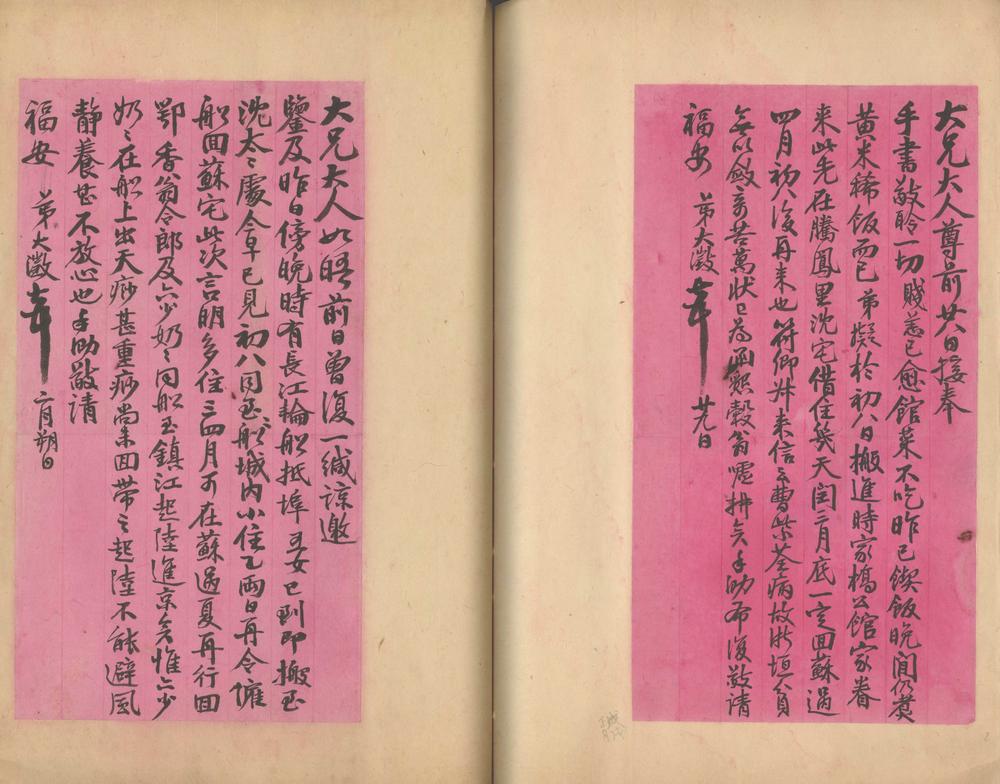 大兄大人尊前廿八日接奉
手書敬聆一切賤恙已愈館菜不吃昨已鍥飯晚間仍煮
黃米稀飯而已弟擬於初八日搬進時家橋公館家眷
来此先在騰鳳里沈宅借住幾天閏三月底一定回蘇過
四月初六後再来也符卿姊来信云曹紫荃病故浙垣貧
無以斂哀苦萬狀已為函懇穀翁噓拂矣手肋布復敬請
福安 弟大澂頓首 廿九日
大兄大人如晤前日曾復一緘諒邀
鑒及昨日傍晚時有長江輪船抵埠二女已到即搬至
沈太太處今早已見初八同至船城内小住一兩日再令雇
船回蘇宅此次言明多住三四月可在蘇過夏再行回
鄂香翁令郎及六少奶奶同船至鎮江起陸進京矣惟六少
奶奶在船上出天痧甚重痧尚未回帶之起陸不能避風
靜養甚不放心也手肋敬請
福安 弟大澂頓首 二月朔日